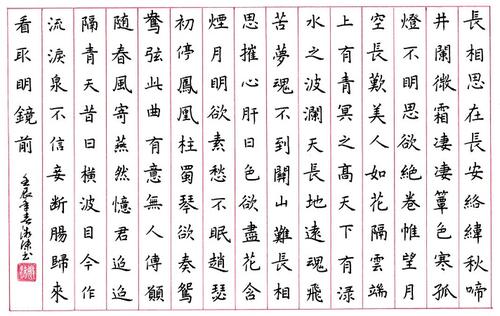 長相思在長安絡緯秋啼
井闌微霜凄凄簟色寒孤
燈不明思欲絶卷帷望月
空長歎美人如花隔雲端
上有青冥之髙天下有渌
水之波瀾天長地遠魂飛
苦夢魂不到關山難長相
思摧心肝日色欲盡花含
煙月明欲素愁不眠趙瑟
初停鳳凰柱蜀琴欲奏鴛
鴦弦此曲有意無人傳願
随春風寄燕然憶君迢迢
隔青天昔日横波目今作
流淚泉不信妾斷腸歸來
看取明鏡前
壬辰年春